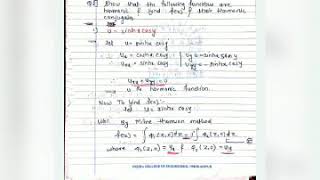 Q] Show that the following function are
harmonic & find f(z) & their harmonic
conjugate.
i) u = sinhx cosy
let u = sinhx cosy
∴ Ux = coshx cosy Uy = -sinhx siny
Uxx = sinhx cosy Uyy = -sinhx cosy
∴ Uxx + Uyy = 0
⇒ u is harmonic function.
Now To find f(z):-
let u = sinhx cosy
By Milne thomson method
f(z) = ∫ φ1(z,0)dz - i ∫ φ2(z,0)dz
where φ1(z,0) = Ux & φ2(z,0) = Uy
COLLEGE OF ENGINEERING